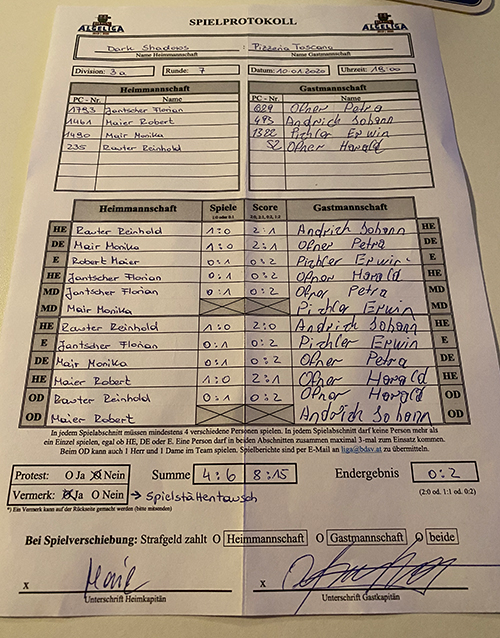 ALGELIGA SPIELPROTOKOLL ALGELIGA
Dark Shadows : Pizzeria Toscana
Name Heimmannschaft Name Gastmannschaft
Division: 3a Runde: 7 Datum: 10.01.2020 Uhrzeit: 18:00
Heimmannschaft Gastmannschaft
PC - Nr. Name PC - Nr. Name
1793 Jantscher Florian 629 Ofner Petra
1461 Maier Robert 493 Andrich Johann
1490 Mair Monika 1322 Pichler Erwin
235 Rauter Reinhold 52 Ofner Harald
Heimmannschaft Spiele Score Gastmannschaft
1:0 oder 0:1 2:0, 2:1, 0:2, 1:2
HE Rauter Reinhold 1:0 2:1 Andrich Johann HE
DE Mair Monika 1:0 2:1 Ofner Petra DE
E Robert Maier 0:1 0:2 Pichler Erwin E
HE Jantscher Florian 0:1 0:2 Ofner Harald HE
MD Jantscher Florian 0:1 0:2 Ofner Petra MD
MD Mair Monika Pichler Erwin MD
HE Rauter Reinhold 1:0 2:0 Andrich Johann HE
E Jantscher Florian 0:1 0:2 Pichler Erwin E
DE Mair Monika 0:1 0:2 Ofner Petra DE
HE Maier Robert 1:0 2:1 Ofner Harald HE
OD Rauter Reinhold 0:1 0:2 Ofner Harald OD
OD Maier Robert Andrich Johann OD
In jedem Spielabschnitt müssen mindestens 4 verschiedene Personen spielen. In jedem Spielabschnitt darf keine Person mehr als
ein Einzel spielen, egal ob HE, DE oder E. Eine Person darf in beiden Abschnitten zusammen maximal 3-mal zum Einsatz kommen.
Beim OD kann auch 1 Herr und 1 Dame im Team spielen. Spielberichte sind per E-Mail an liga@bdsv.at zu übermitteln.
Protest: O Ja O Nein Summe 4:6 8:15 Endergebnis 0:2
Vermerk: O Ja O Nein → Spielstättentausch (2:0 od. 1:1 od. 0:2)
*) Ein Vermerk kann auf der Rückseite gemacht werden (bitte mitsenden)
Bei Spielverschiebung: Strafgeld zahlt O Heimmannschaft O Gastmannschaft O beide
X Mair X
Unterschrift Heimkapitän Unterschrift Gastkapitän